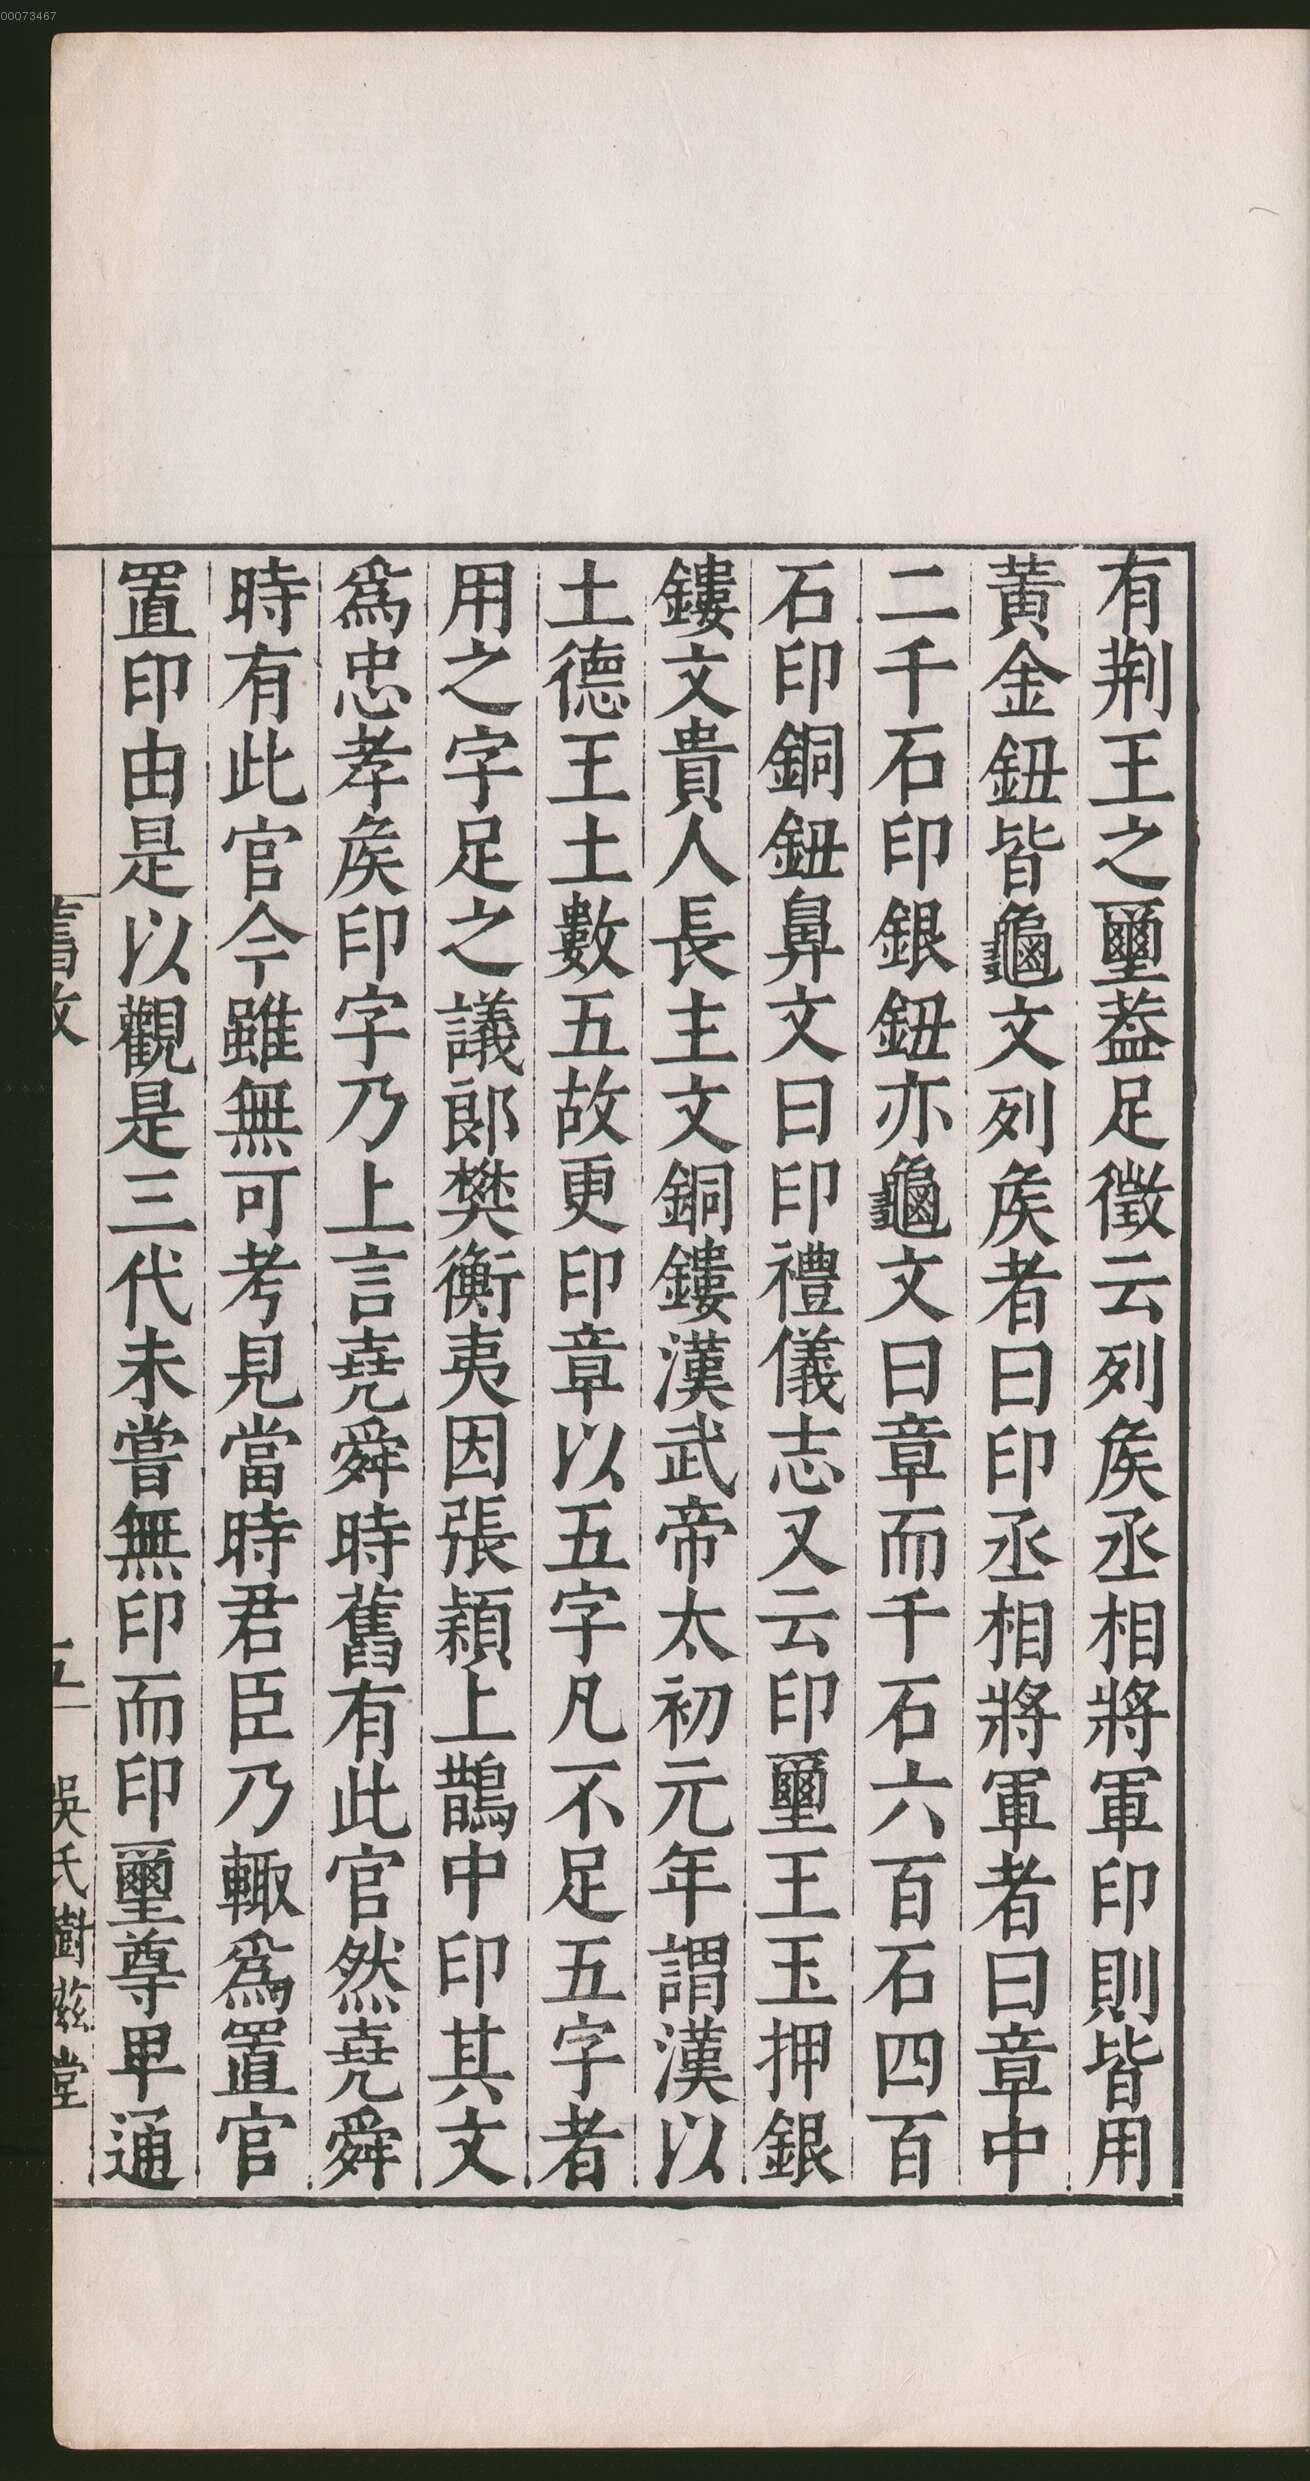 00073467
有荆王之璽葢足徵云列矦丞相將軍印則皆用
黃金鈕皆龜文列矦者曰印丞相將軍者曰章中
二千石印銀鈕亦龜文曰章而千石六百石四百
石印銅鈕鼻文曰印禮儀志又云印璽王玉押銀
鏤文貴人長主文銅鏤漢武帝太初元年謂漢以
土德王土數五故更印章以五字凡不足五字者
用之字足之議郎樊衡夷因張穎上鵲中印其文
爲忠孝矦印字乃上言堯舜時舊有此官然堯舜
時有此官今雖無可考見當時君臣乃輙爲置官
置印由是以觀是三代未嘗無印而印璽尊卑通
舊敘
五
吳氏樹滋堂